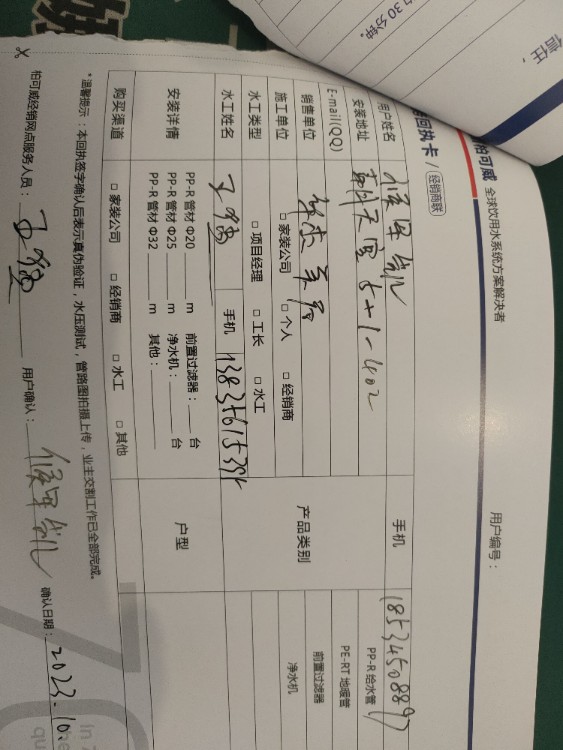 信任，
30 分钟。
柏可威 全球饮用水系统方案解决者
用户编号：
回执卡 / 经销商联
用户姓名
手机 18534508897
安装地址 5+1-402
E-mail(QQ)
销售单位
产品类别
PP-R 给水管
PE-RT 地暖管
前置过滤器
净水机
施工单位 □ 家装公司 □ 个人 □ 经销商
水工类型 □ 项目经理 □ 工长 □ 水工
水工姓名 手机
安装详情
PP-R 管材 Φ20 m 前置过滤器： 台
PP-R 管材 Φ25 m 净水机： 台
PP-R 管材 Φ32 m 其他：
户型
购买渠道 □ 家装公司 □ 经销商 □ 水工 □ 其他
*温馨提示：本回执签字确认后表示真伪验证，水压测试，管路图拍摄上传，业主交割工作已全部完成。
柏可威经销网点服务人员： 用户确认： 确认日期：2023.10